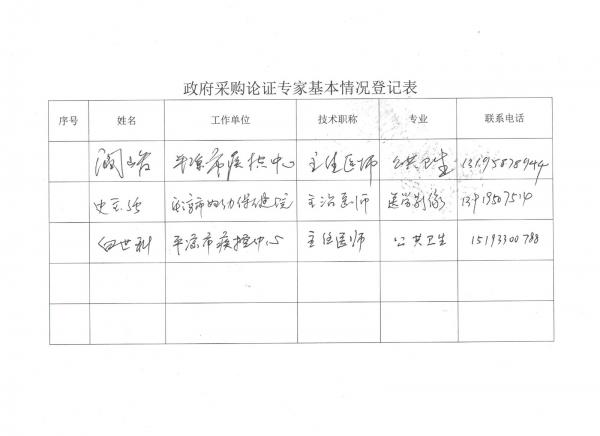 政府采购论证专家基本情况登记表
序号 姓名 工作单位 技术职称 专业 联系电话
平凉市疾控中心 主任医师 公共卫生
市妇幼保健院 主治医师 医学影像
田世科 平凉市疾控中心 主任医师 公共卫生 15193300788